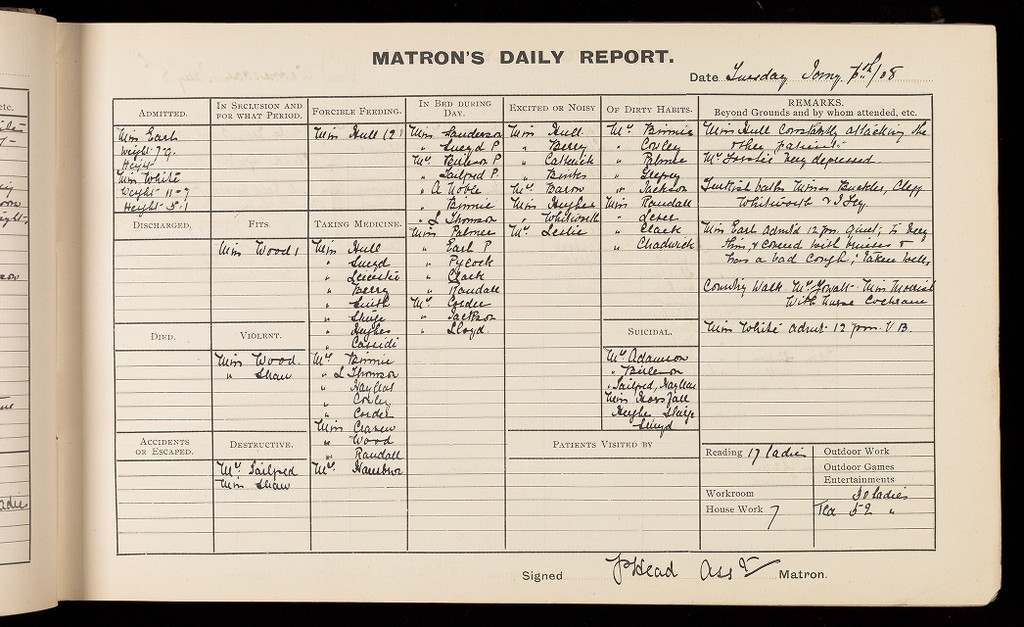 MATRON'S DAILY REPORT.
Date Tuesday Jany. 7th/08
ADMITTED.
Miss Earl
Weight 7-9.
Height
Miss White
Weight 11-9
Height 5-1
DISCHARGED.
DIED.
ACCIDENTS
OR ESCAPED.
IN SECLUSION AND
FOR WHAT PERIOD.
FITS
Miss Wood 1
VIOLENT.
Miss Wood.
" Shaw
DESTRUCTIVE.
Mrs Tailford
Miss Shaw
FORCIBLE FEEDING.
Miss Hull (2)
TAKING MEDICINE.
Miss Hull
"
"
" Berry
" Smith
"
" Hughes
" Cassidi
Mrs Binnie
" L Thomson
"
" Corley
" Corder
Miss
" Wood
" Randall
Mrs
IN BED DURING
DAY.
Miss Sanderson
" P
Mrs P
" Tailford P
" A Noble
" Binnie
" L Thomson
Miss Palmer
" Earl P
" Pycock
" Clark
" Randall
Mrs Corder
" Jackson
" Lloyd.
EXCITED OR NOISY
Miss Hull
" Berry
"
" Binks
Mrs Baron
Miss Hughes
" Whitworth
Mrs Leslie
PATIENTS VISITED BY
OF DIRTY HABITS.
Mrs Binnie
" Corley
"
"
" Jackson
Miss Randall
"
" Clark
" Chadwick
SUICIDAL.
Mrs Adamson
"
" Tailford,
Miss Horsfall
Hughes
REMARKS.
Beyond Grounds and by whom attended, etc.
Miss Hull constantly attacking the
other patients.
Mrs very depressed
Turkish baths Misses Buckley, Clegg
Whitworth &
Miss Earl admtd 12 pm. quiet, is very
thin, & covered with bruises &
has a bad cough; taken well,
Country Walk Mrs Miss
With nurse Cochrane
Miss White admt. 12 pm. V B.
Reading 17 ladies
Workroom
House Work 7
Outdoor Work
Outdoor Games
Entertainments
30 ladies
Tea 52 "
Signed Head Asst Matron.